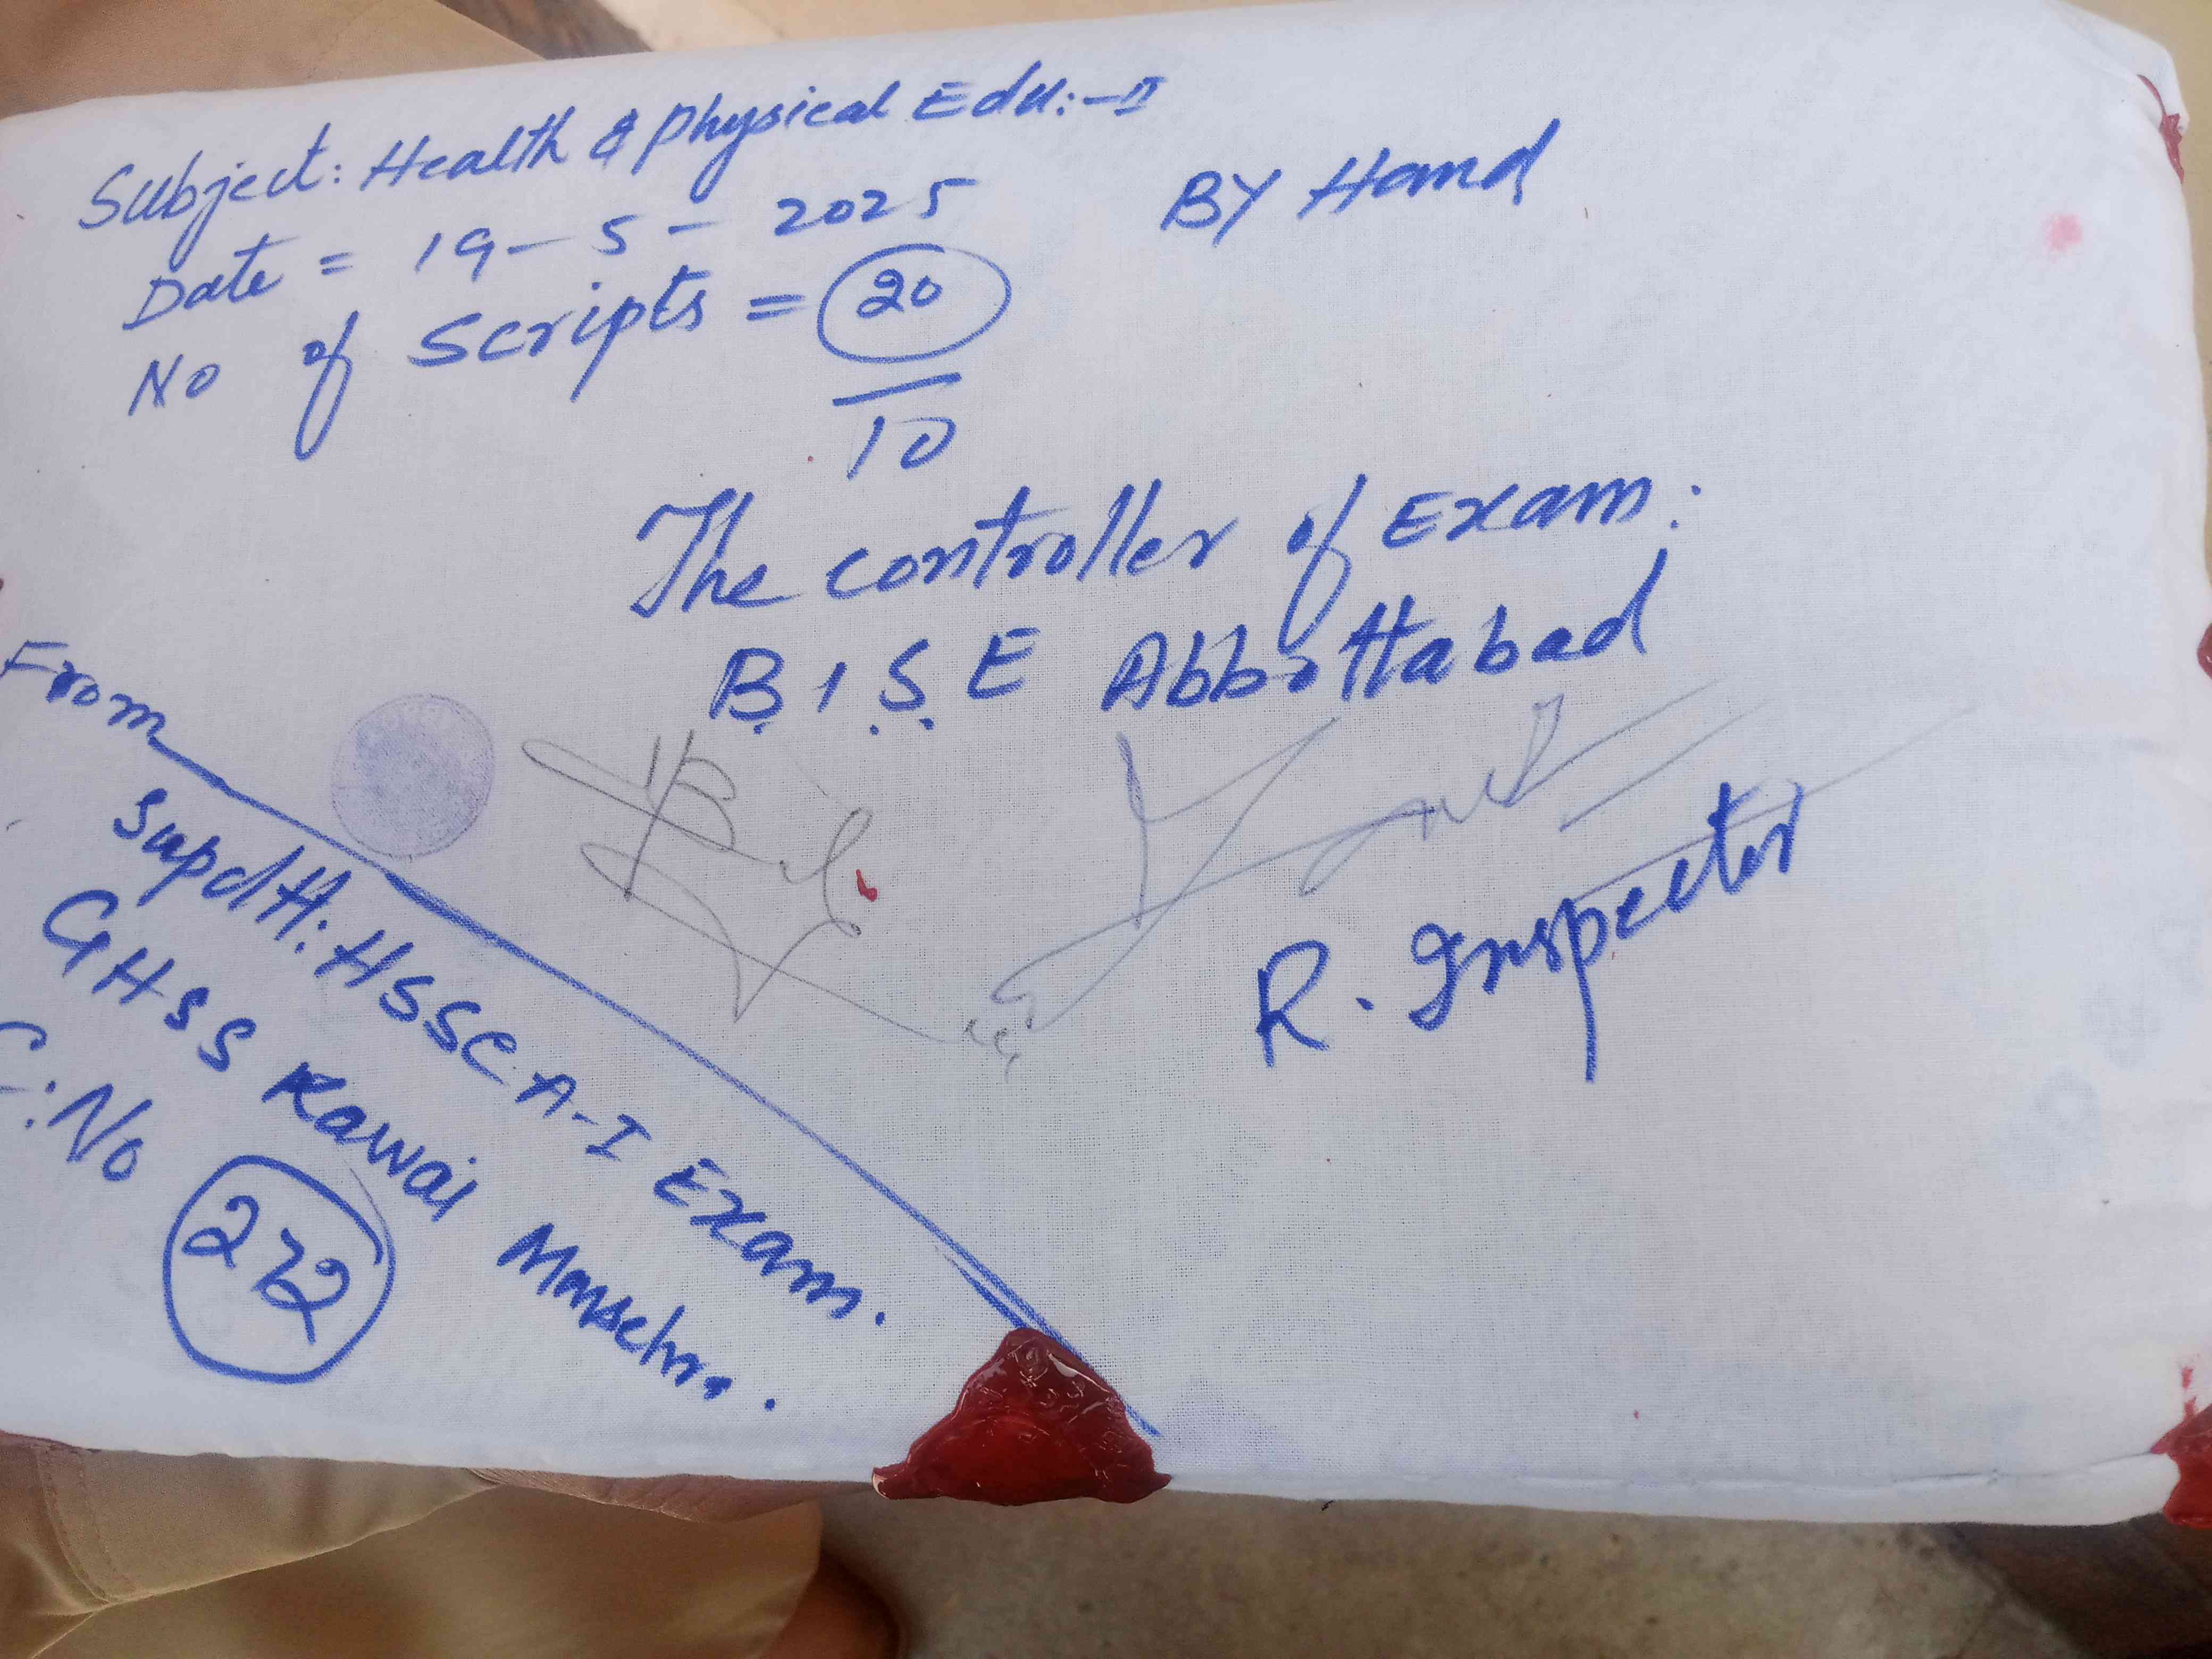 Subject: Health & Physical Edu:-II
Date = 19-5-2025
BY Hand
No of Scripts = 20
10
The controller of Exam:
B.I.S.E Abbottabad
R. Inspector
From
Supdtt: HSSC A-I Exam.
GHSS Kawai Mansehra.
C:No 272